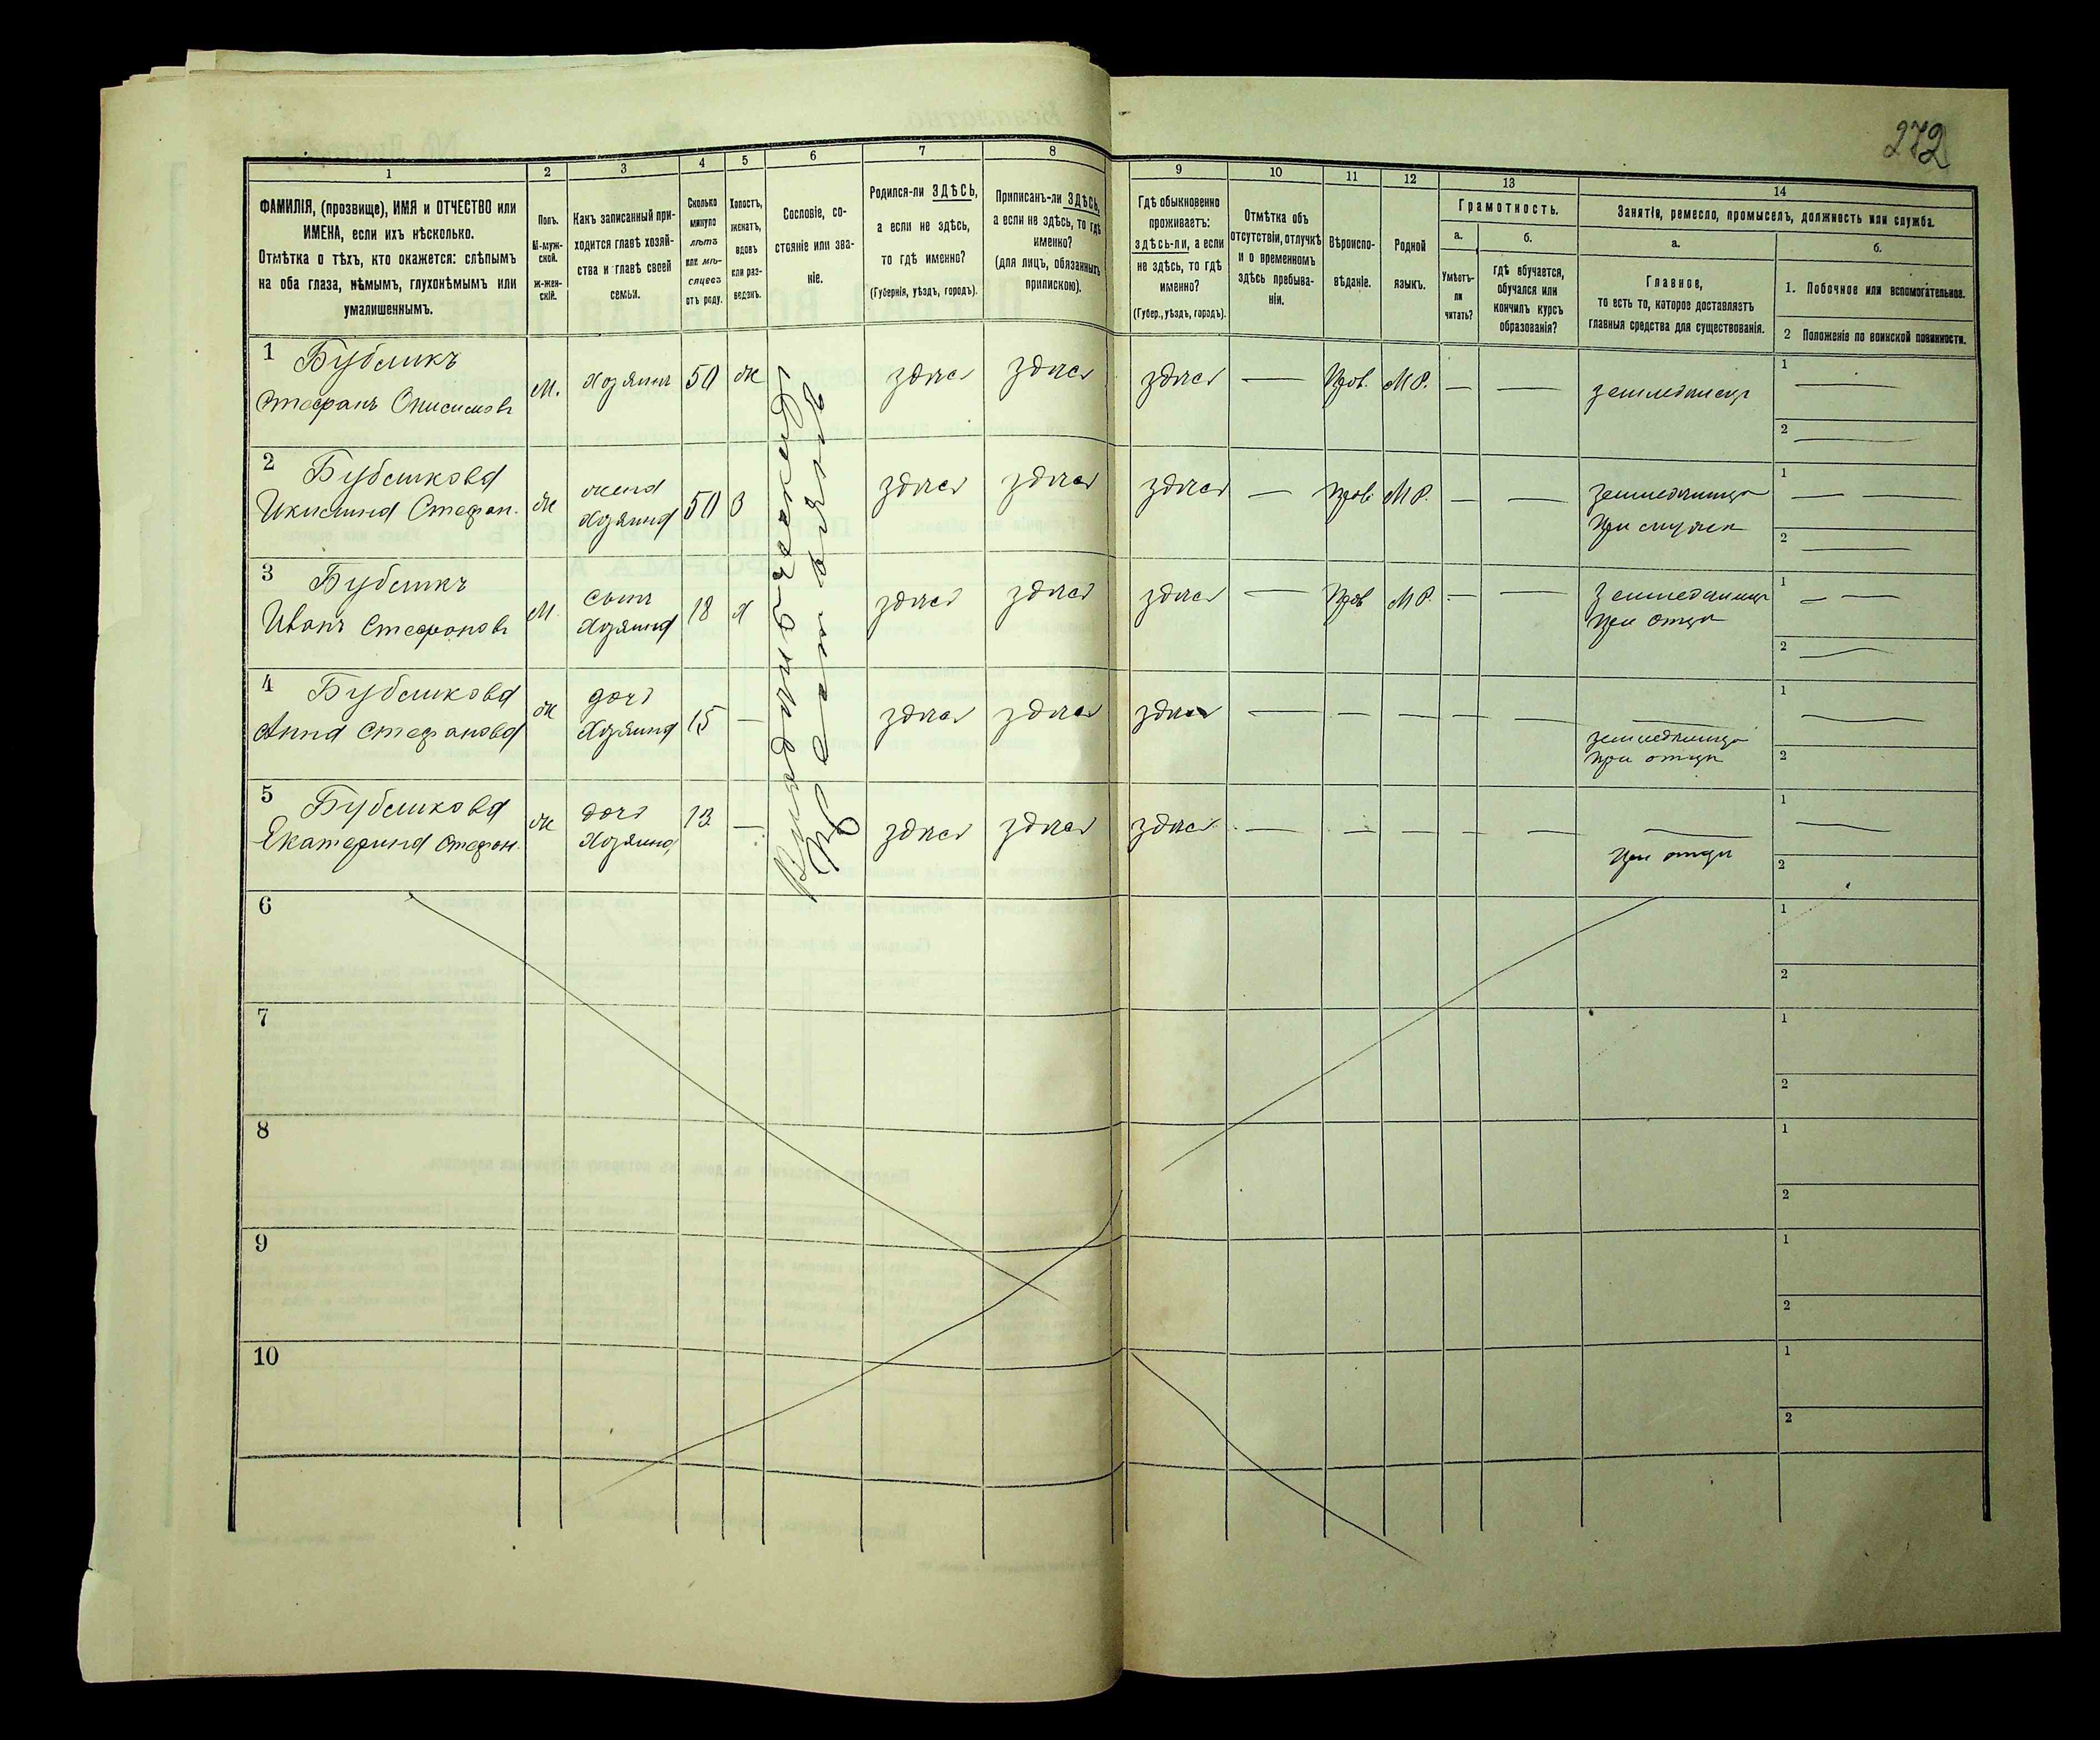 272
1
2
3
4
5
6
7
8
9
10
11
12
13
14
ФАМИЛІЯ, (прозвище), ИМЯ и ОТЧЕСТВО или
ИМЕНА, если ихъ нѣсколько.
Отмѣтка о тѣхъ, кто окажется: слѣпымъ
на оба глаза, нѣмымъ, глухонѣмымъ или
умалишеннымъ.
Полъ.
М-муж-
ской.
Ж-жен-
скій.
Какъ записанный при-
ходится главѣ хозяй-
ства и главѣ своей
семьи.
Сколько
минуло
лѣтъ
или мѣ-
сяцевъ
отъ роду.
Холостъ,
женатъ,
вдовъ
или раз-
веденъ.
Сословіе, со-
стояніе или зва-
ніе.
Родился-ли ЗДѢСЬ,
а если не здѣсь,
то гдѣ именно?
(Губернія, уѣздъ, городъ).
Приписанъ-ли ЗДѢСЬ,
а если не здѣсь, то гдѣ
именно?
(для лицъ, обязанныхъ
припискою).
Гдѣ обыкновенно
проживаетъ:
здѣсь-ли, а если
не здѣсь, то гдѣ
именно?
(Губер., уѣздъ, городъ).
Отмѣтка объ
отсутствіи, отлучкѣ
и о временномъ
здѣсь пребыва-
ніи.
Вѣроиспо-
вѣданіе.
Родной
языкъ.
Грамотность.
а.
Умѣетъ-
ли
читать?
б.
гдѣ обучается,
обучался или
кончилъ курсъ
образованія?
Занятіе, ремесло, промыселъ, должность или служба.
а.
Главное,
то есть то, которое доставляетъ
главныя средства для существованія.
б.
1. Побочное или вспомогательное.
2 Положеніе по воинской повинности.
1 Бубликъ
Стефанъ Онисимовъ
М.
Хозяинъ
50
ж
здѣсь
здѣсь
здѣсь
—
Прав.
МР.
—
—
земледѣлецъ
1 —
2 —
2 Бубликова
Стефан.
ж
жена
Хозяина
50
З
здѣсь
здѣсь
здѣсь
—
Прав.
МР.
—
—
при мужѣ
1 — —
2 —
3 Бубликъ
Иванъ Стефановъ
М.
сынъ
Хозяина
18
Х
здѣсь
здѣсь
здѣсь
—
Прав
МР.
—
—
при отцѣ
1 — —
2 —
4 Бубликова
Анна Стефанова
ж
дочь
Хозяина
15
—
здѣсь
здѣсь
здѣсь
—
—
—
—
—
—
при отцѣ
1 —
2
5 Бубликова
Екатерина Стефан.
ж
дочь
Хозяина
13
—
здѣсь
здѣсь
здѣсь
—
—
—
—
—
—
при отцѣ
1 —
2
6
1
2
7
1
2
8
1
2
9
1
2
10
1
2